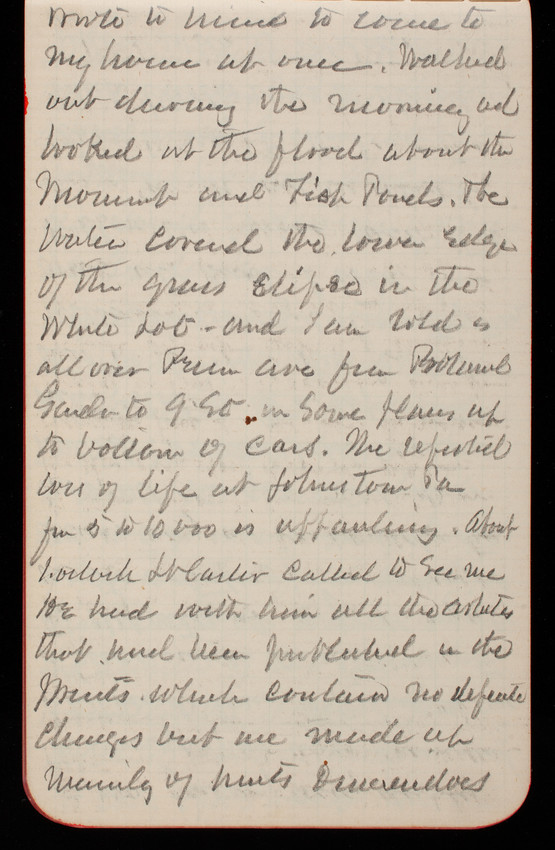 wrote to him to come to
my home at once. Walked
out during the morning and
looked at the flood about the
Monument and Fish Ponds. The
water covered the lower edge
of the grass Elipse in the
White Lot - and I am told is
all over Penn ave from Botanical
Garden to 9 St in some places up
to bottom of cars. The reported
loss of life at Johnstown Pa
from 5 to 10 000 is appauling. About
1. oclock Lt Carter called to see me
He had with him all the articles
that had been published in the
prints which contain no definite
charges but are made up
mainly of hints Inuendoes